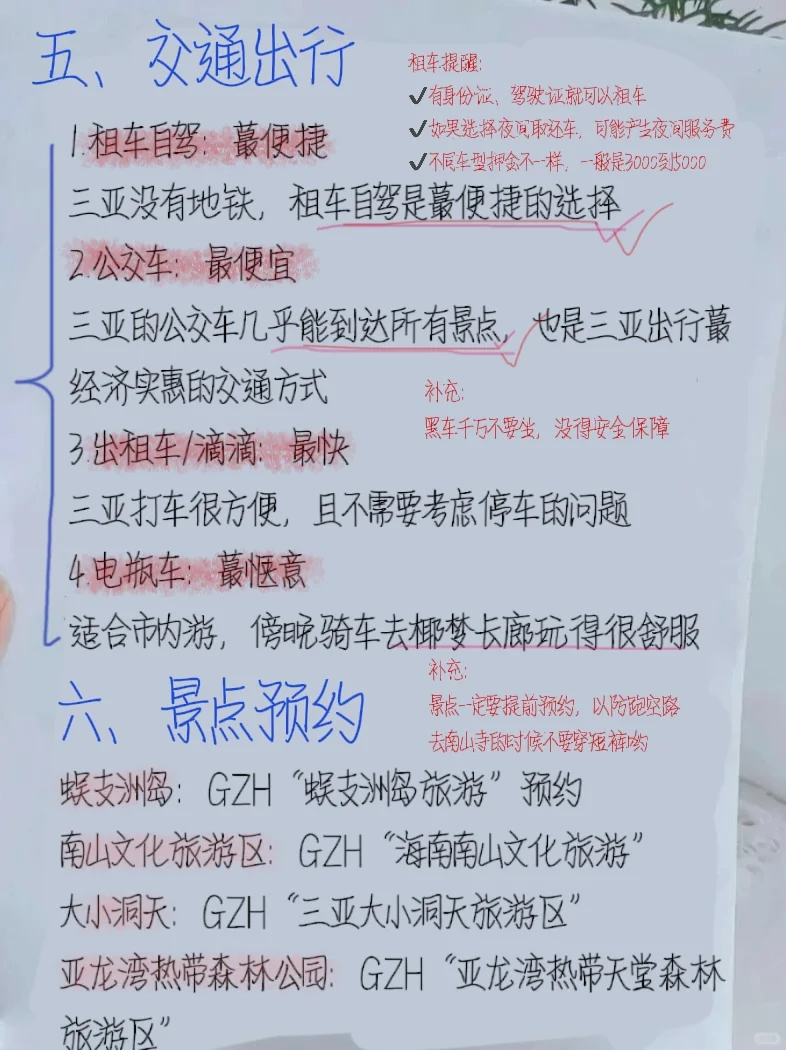 五、交通出行
租车提醒:
✓有身份证、驾驶证就可以租车
✓如果选择夜间取还车，可能产生夜间服务费
✓不同车型押金不一样，一般是3000到5000
1.租车自驾：最便捷
三亚没有地铁，租车自驾是最便捷的选择
2.公交车：最便宜
三亚的公交车几乎能到达所有景点，也是三亚出行最
经济实惠的交通方式
补充:
黑车千万不要坐，没得安全保障
3.出租车/滴滴：最快
三亚打车很方便，且不需要考虑停车的问题
4.电瓶车：最惬意
适合市内游，傍晚骑车去椰梦长廊玩得很舒服
六、景点预约
补充:
景点一定要提前预约，以防跑空路
去南山寺的时候不要穿短裤哟
蜈支洲岛：GZH“蜈支洲岛旅游”预约
南山文化旅游区：GZH“海南南山文化旅游”
大小洞天：GZH“三亚大小洞天旅游区”
亚龙湾热带森林公园：GZH“亚龙湾热带天堂森林
旅游区”